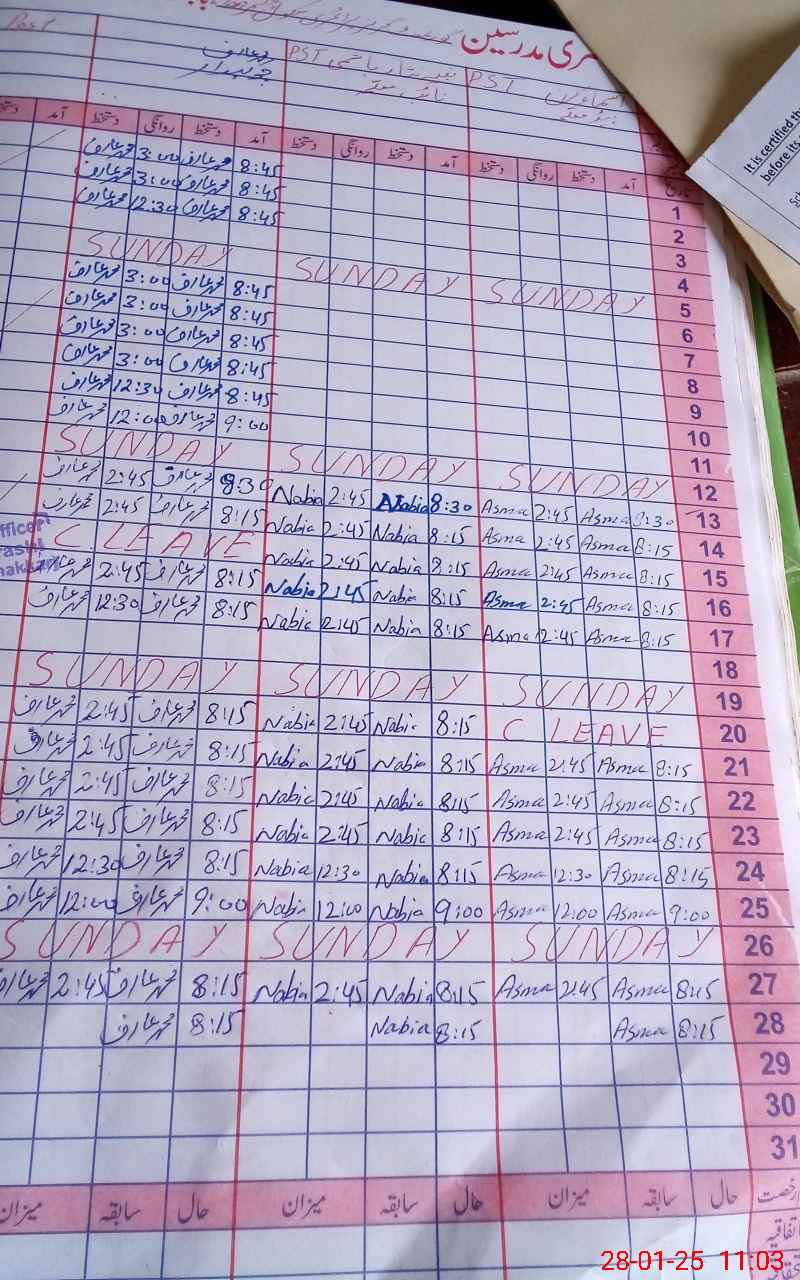 سری مدرسین
PST
PST
محمد عارف
چوکیدار
آمد دستخط روانگی دستخط آمد دستخط روانگی دستخط آمد دستخط روانگی دستخط آمد
1 8:45 محمد عارف 3:00 محمد عارف
2 8:45 محمد عارف 3:00 محمد عارف
3 8:45 محمد عارف 12:30 محمد عارف
4
5 SUNDAY SUNDAY SUNDAY
6 8:45 محمد عارف 3:00 محمد عارف
7 8:45 محمد عارف 3:00 محمد عارف
8 8:45 محمد عارف 3:00 محمد عارف
9 8:45 محمد عارف 3:00 محمد عارف
10 8:45 محمد عارف 12:30 محمد عارف
11 9:00 محمد عارف 12:00 محمد عارف
12 SUNDAY SUNDAY SUNDAY
13 8:30 Asma 2:45 Asma 8:30 Nabia 2:45 Nabia 8:30 محمد عارف 2:45 محمد عارف
14 8:15 Asma 2:45 Asma 8:15 Nabia 2:45 Nabia 8:15 محمد عارف 2:45 محمد عارف
15 8:15 Asma 2:45 Asma 8:15 Nabia 2:45 Nabia C. LEAVE
16 8:15 Asma 2:45 Asma 8:15 Nabia 2:45 Nabia 8:15 محمد عارف 2:45 محمد عارف
17 8:15 Asma 12:45 Asma 8:15 Nabia 2:45 Nabia 8:15 محمد عارف 12:30 محمد عارف
18
19 SUNDAY SUNDAY SUNDAY
20 C LEAVE 8:15 Nabia 2:45 Nabia 8:15 محمد عارف 2:45 محمد عارف
21 8:15 Asma 2:45 Asma 8:15 Nabia 2:45 Nabia 8:15 محمد عارف 2:45 محمد عارف
22 8:15 Asma 2:45 Asma 8:15 Nabia 2:45 Nabia 8:15 محمد عارف 2:45 محمد عارف
23 8:15 Asma 2:45 Asma 8:15 Nabia 2:45 Nabia 8:15 محمد عارف 2:45 محمد عارف
24 8:15 Asma 12:30 Asma 8:15 Nabia 12:30 Nabia 8:15 محمد عارف 12:30 محمد عارف
25 9:00 Asma 12:00 Asma 9:00 Nabia 12:00 Nabia 9:00 محمد عارف 12:00 محمد عارف
26 SUNDAY SUNDAY SUNDAY
27 8:15 Asma 2:45 Asma 8:15 Nabia 2:45 Nabia 8:15 محمد عارف 2:45 محمد عارف
28 8:15 Asma 8:15 Nabia 8:15 محمد عارف
29
30
31
رخصت حال سابقہ میزان حال سابقہ میزان حال سابقہ میزان
اتفاقیہ
It is certified th
before its
28-01-25 11:03